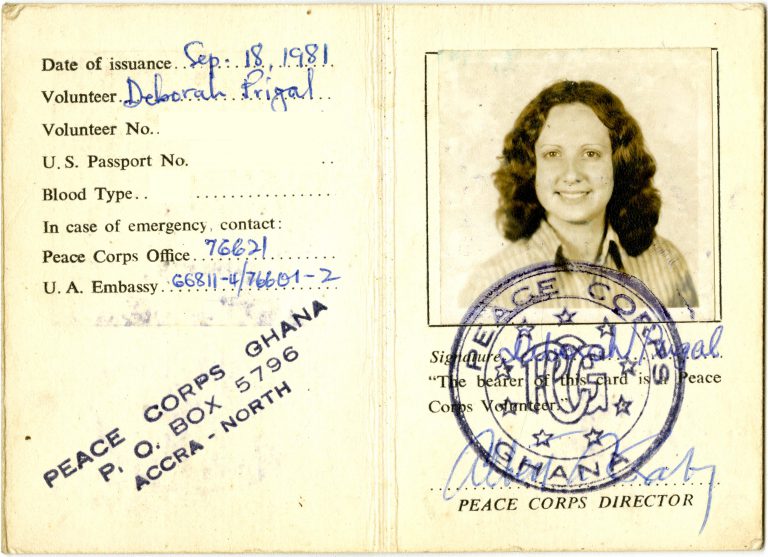 Date of issuance..Sep. 18, 1981
Volunteer.Deborah Prigal
Volunteer No..
U.S. Passport No. ..
Blood Type.. ....................
In case of emergency, contact:
Peace Corps Office..76621..........
U.A. Embassy..66811-4/76601-2
PEACE CORPS GHANA
P. O. BOX 5796
ACCRA - NORTH
PEACE CORPS
PCG
GHANA
Signature Deborah Prigal
"The bearer of this card is a Peace
Corps Volunteer."
PEACE CORPS DIRECTOR